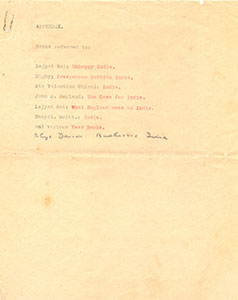 APPENDIX.
Books referred to:
Lajpat Rai: Unhappy India.
Digby: Prosperous British India.
Sir Valentine Chirol: India.
John S. Hoyland: The Case for India.
Lajpat Rai: What England owes to India.
India.
and various Year Books.
Rhys Davids: Buddhist India